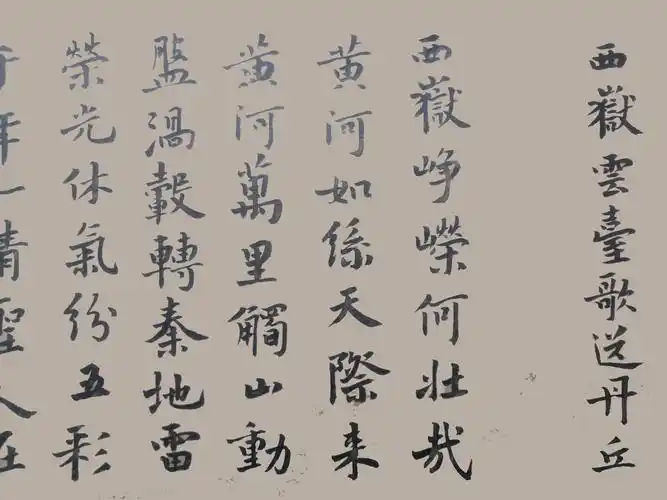 西嶽雲臺歌送丹丘
西嶽崢嶸何壯哉
黄河如絲天際来
黄河萬里觸山動
盤渦轂轉秦地雷
榮光休氣紛五彩
千年一清聖人在